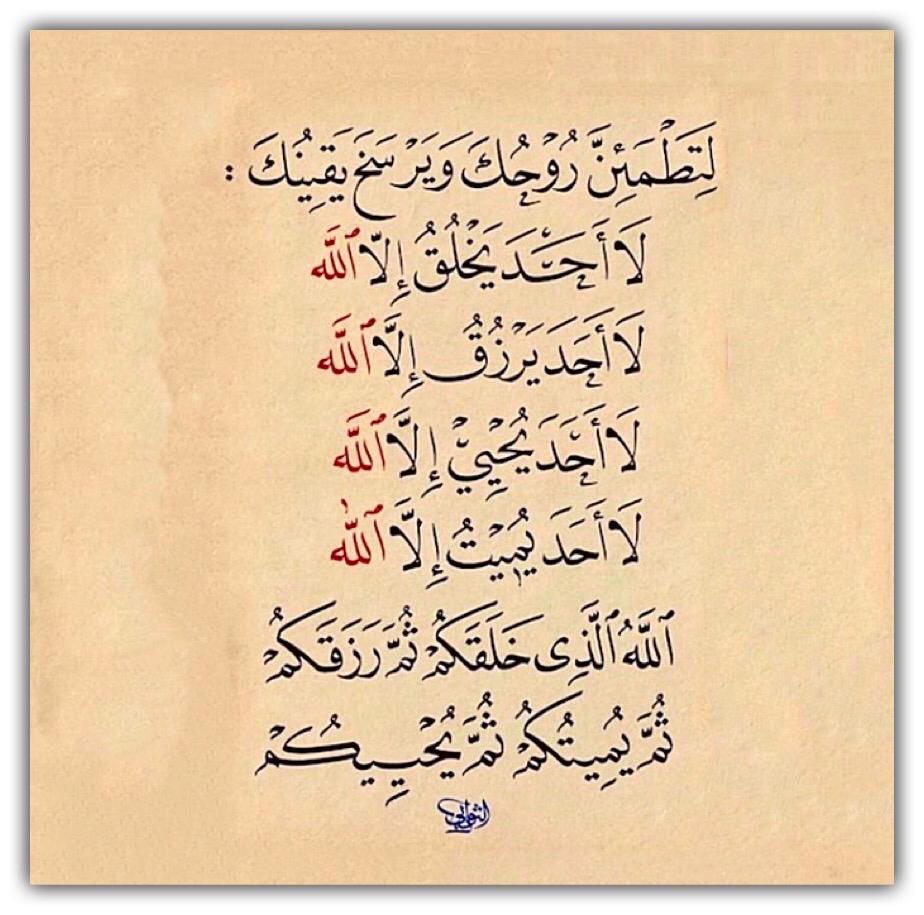 لِتَطْمَئِنَّ رُوْحُكَ وَيَرْسَخَ يَقِينُكَ :
لَا أَحَدَ يَخْلُقُ إِلَّا ٱللَّه
لَا أَحَدَ يَرْزُقُ إِلَّا ٱللَّه
لَا أَحَدَ يُحْيِيْ إِلَّا ٱللَّه
لَا أَحَدَ يُمِيْتُ إِلَّا ٱللَّه
ٱللَّهُ ٱلَّذِى خَلَقَكُمْ ثُمَّ رَزَقَكُمْ
ثُمَّ يُمِيتُكُمْ ثُمَّ يُحْيِيكُمْ